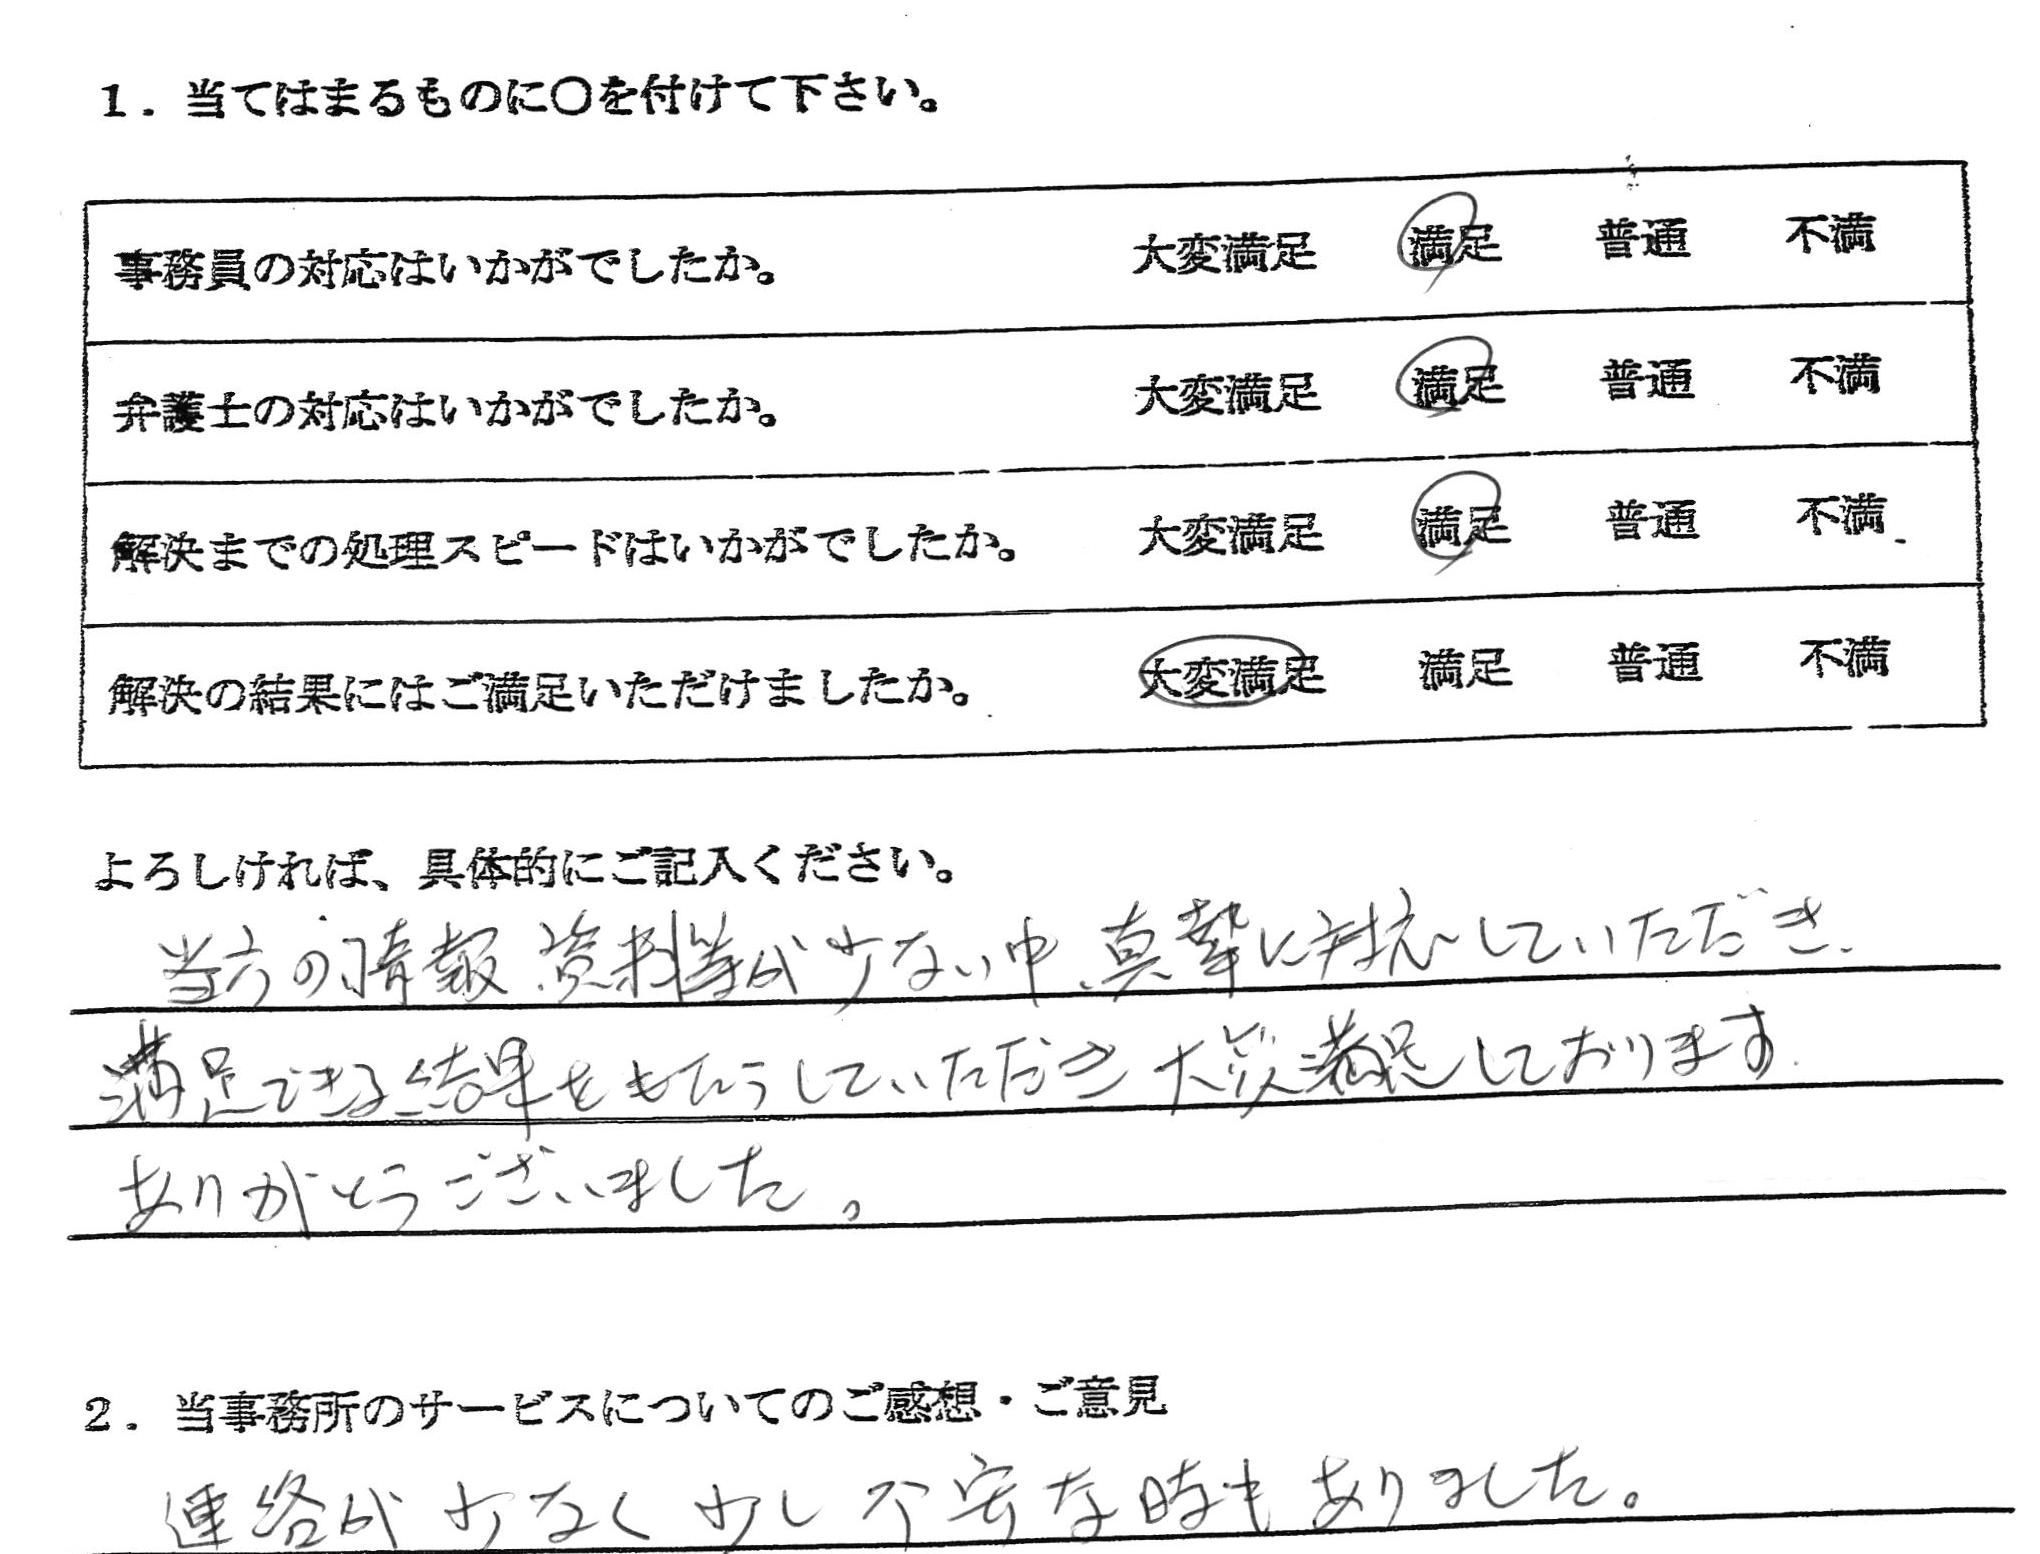 1．当てはまるものに〇を付けて下さい。
事務員の対応はいかがでしたか。 大変満足 満足 普通 不満
弁護士の対応はいかがでしたか。 大変満足 満足 普通 不満
解決までの処理スピードはいかがでしたか。 大変満足 満足 普通 不満
解決の結果にはご満足いただけましたか。 大変満足 満足 普通 不満
よろしければ、具体的にご記入ください。
当方の情報、資料等が少ない中、真摯に対応していただき、
満足できる結果をもたらしていただき大変満足しております。
ありがとうございました。
2．当事務所のサービスについてのご感想・ご意見
連絡が少なく少し不安な時もありました。